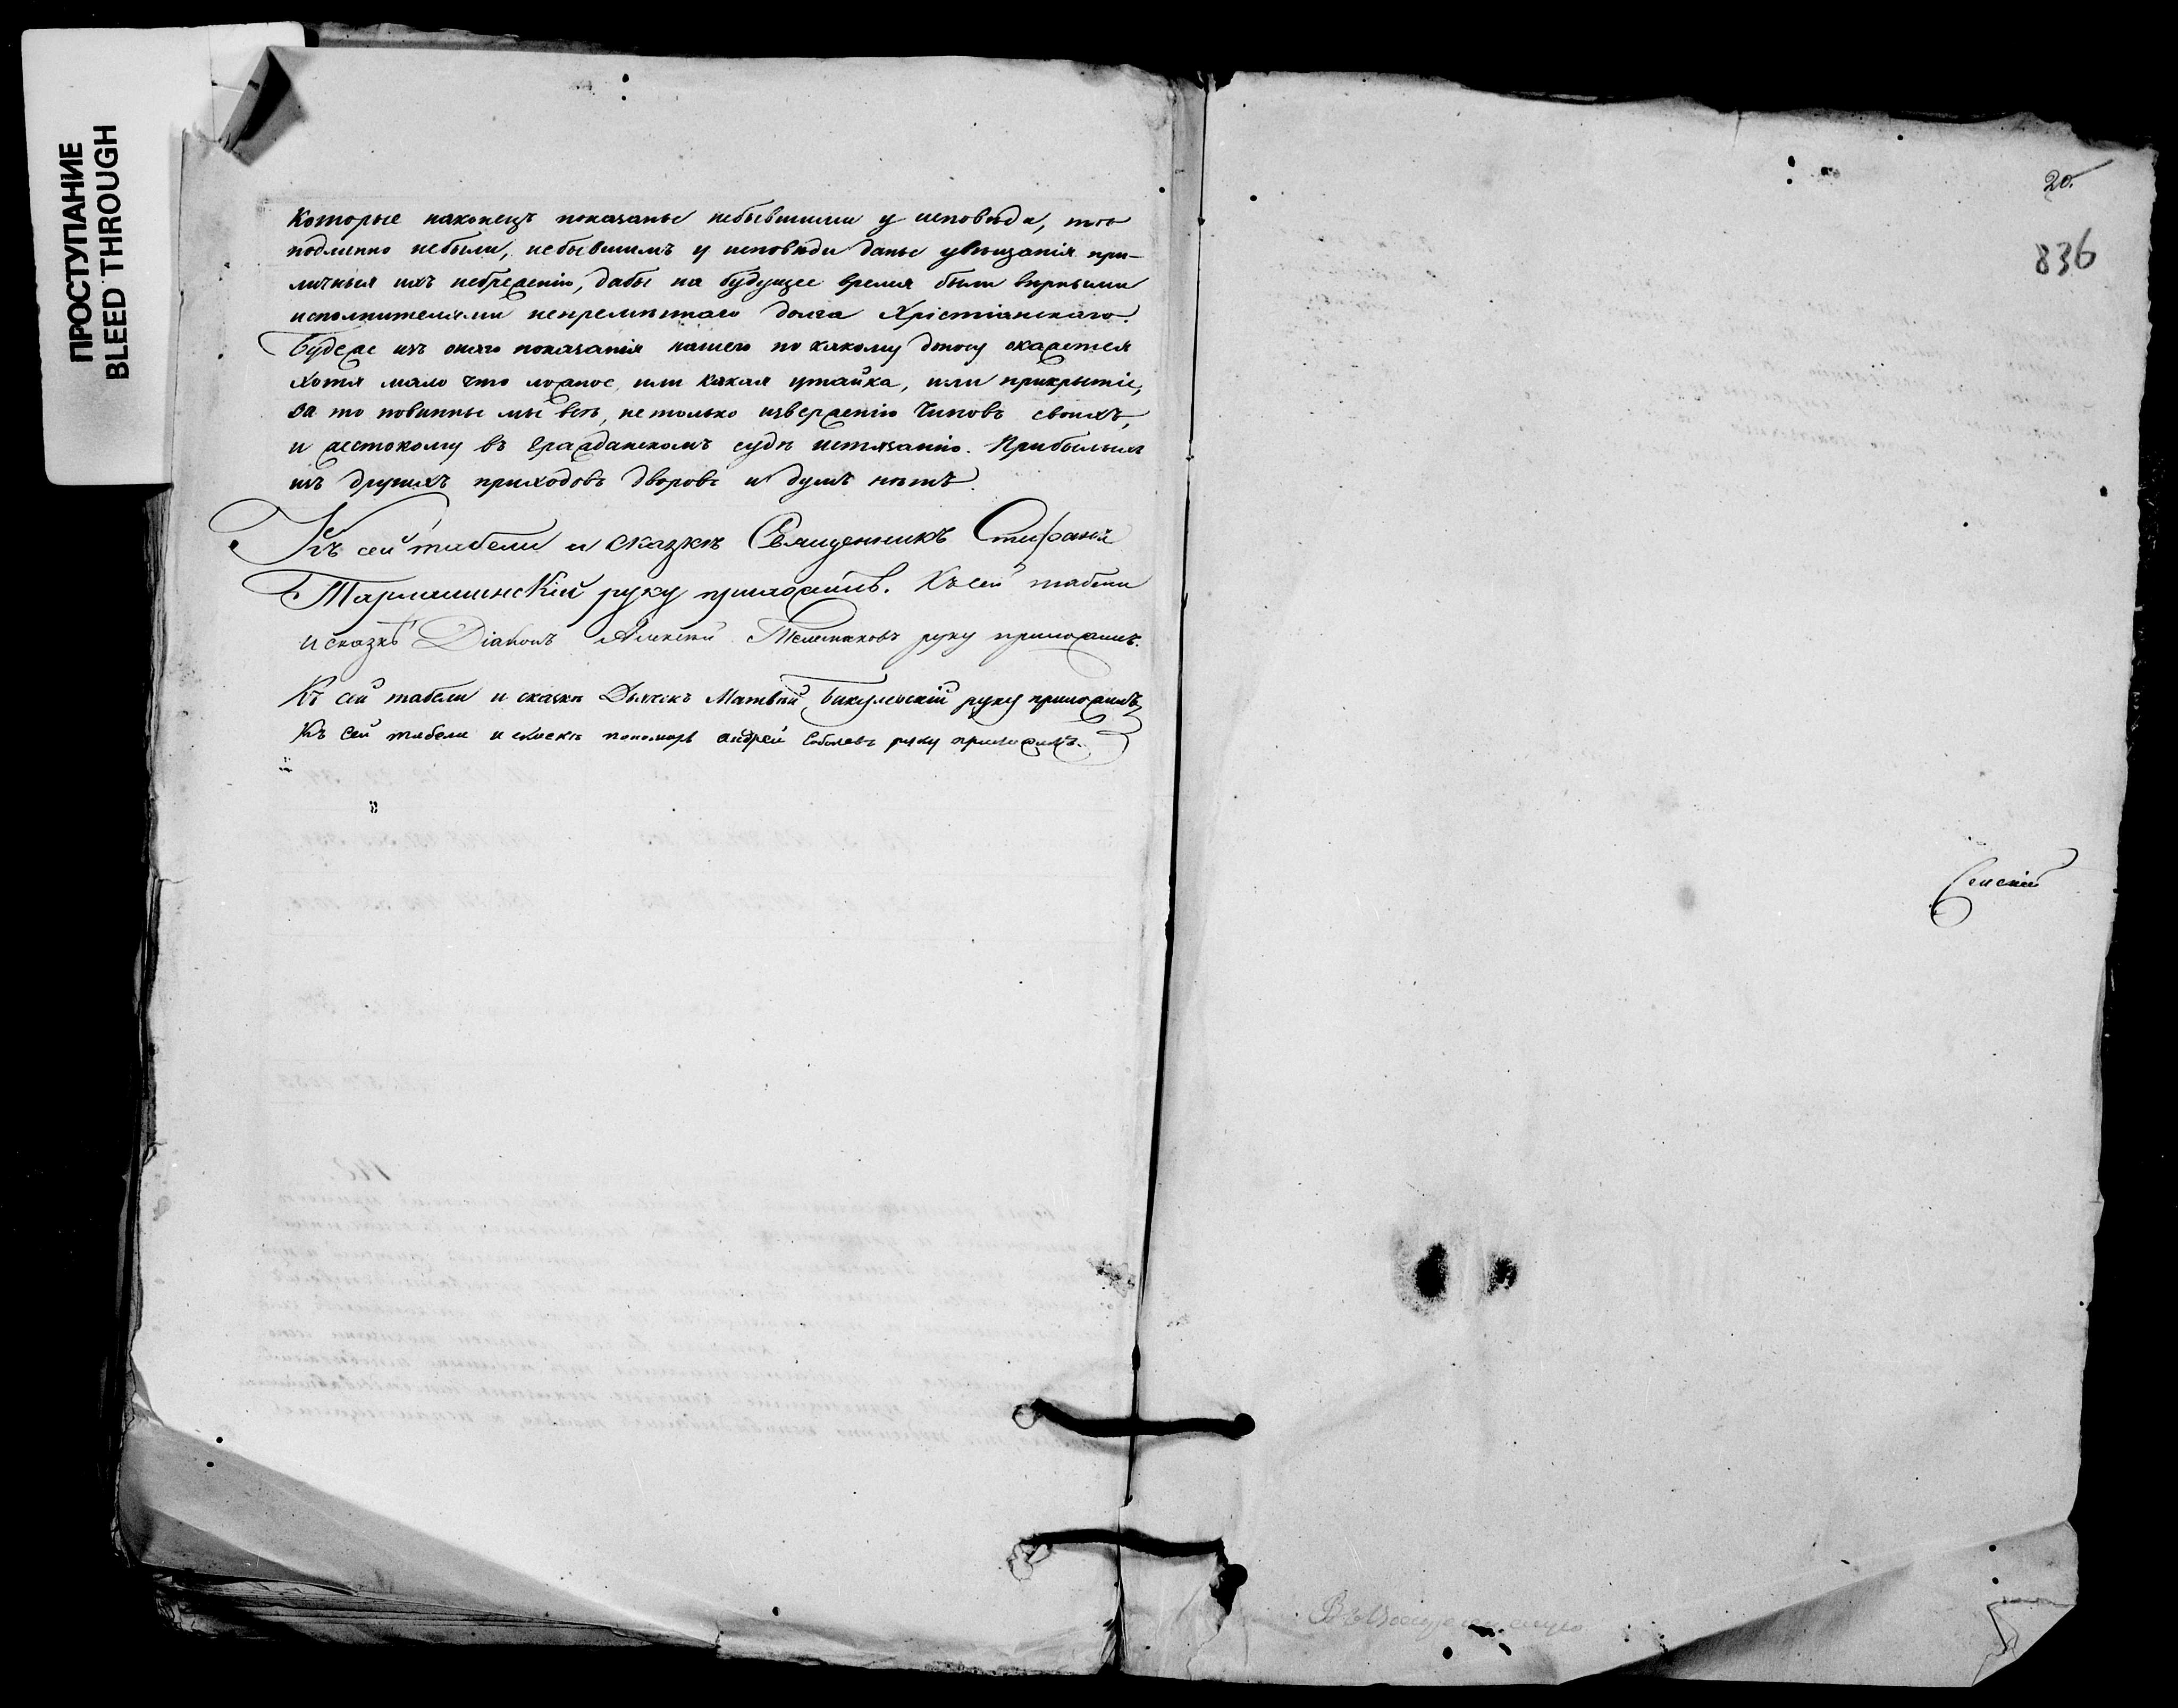 ПРОСТУПАНИЕ
BLEED THROUGH
которые наконецъ показаны небывшими у исповѣди, тѣ
подлинно небыли, небывшимъ у исповѣди даны увѣщанія при-
личныя ихъ небреженію, дабы на будущее время были вѣрными
исполнителями непремѣннаго долга Христіанскаго.
Буде же изъ онаго показанія нашего по какому доносу окажется
хотя мало что ложное, или какая утайка, или прикрытіе,
за то повинны мы всѣ, не только изверженію чиновъ своихъ,
и жестокому въ гражданскомъ судѣ истязанію. Прибылыхъ
изъ другихъ приходовъ дворовъ и душъ нѣтъ.
Къ сей табели и сказкѣ Священникъ Стефанъ
руку приложилъ. Къ сей табели
и сказкѣ Діаконъ Алексей руку приложилъ.
Къ сей табели и сказкѣ Дьячекъ Матвѣй Бакулевскій руку приложилъ
Къ сей табели и сказкѣ пономарь андрей Соболевъ руку приложилъ.
20.
836